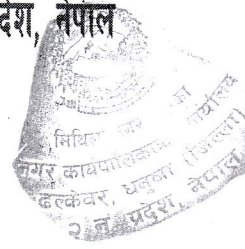 देश, नेपाल
नगर कार्यपालिकाको कार्यालय
ढल्केवर, धनुषा (जिल्ला)
२ नं प्रदेश, नेपाल